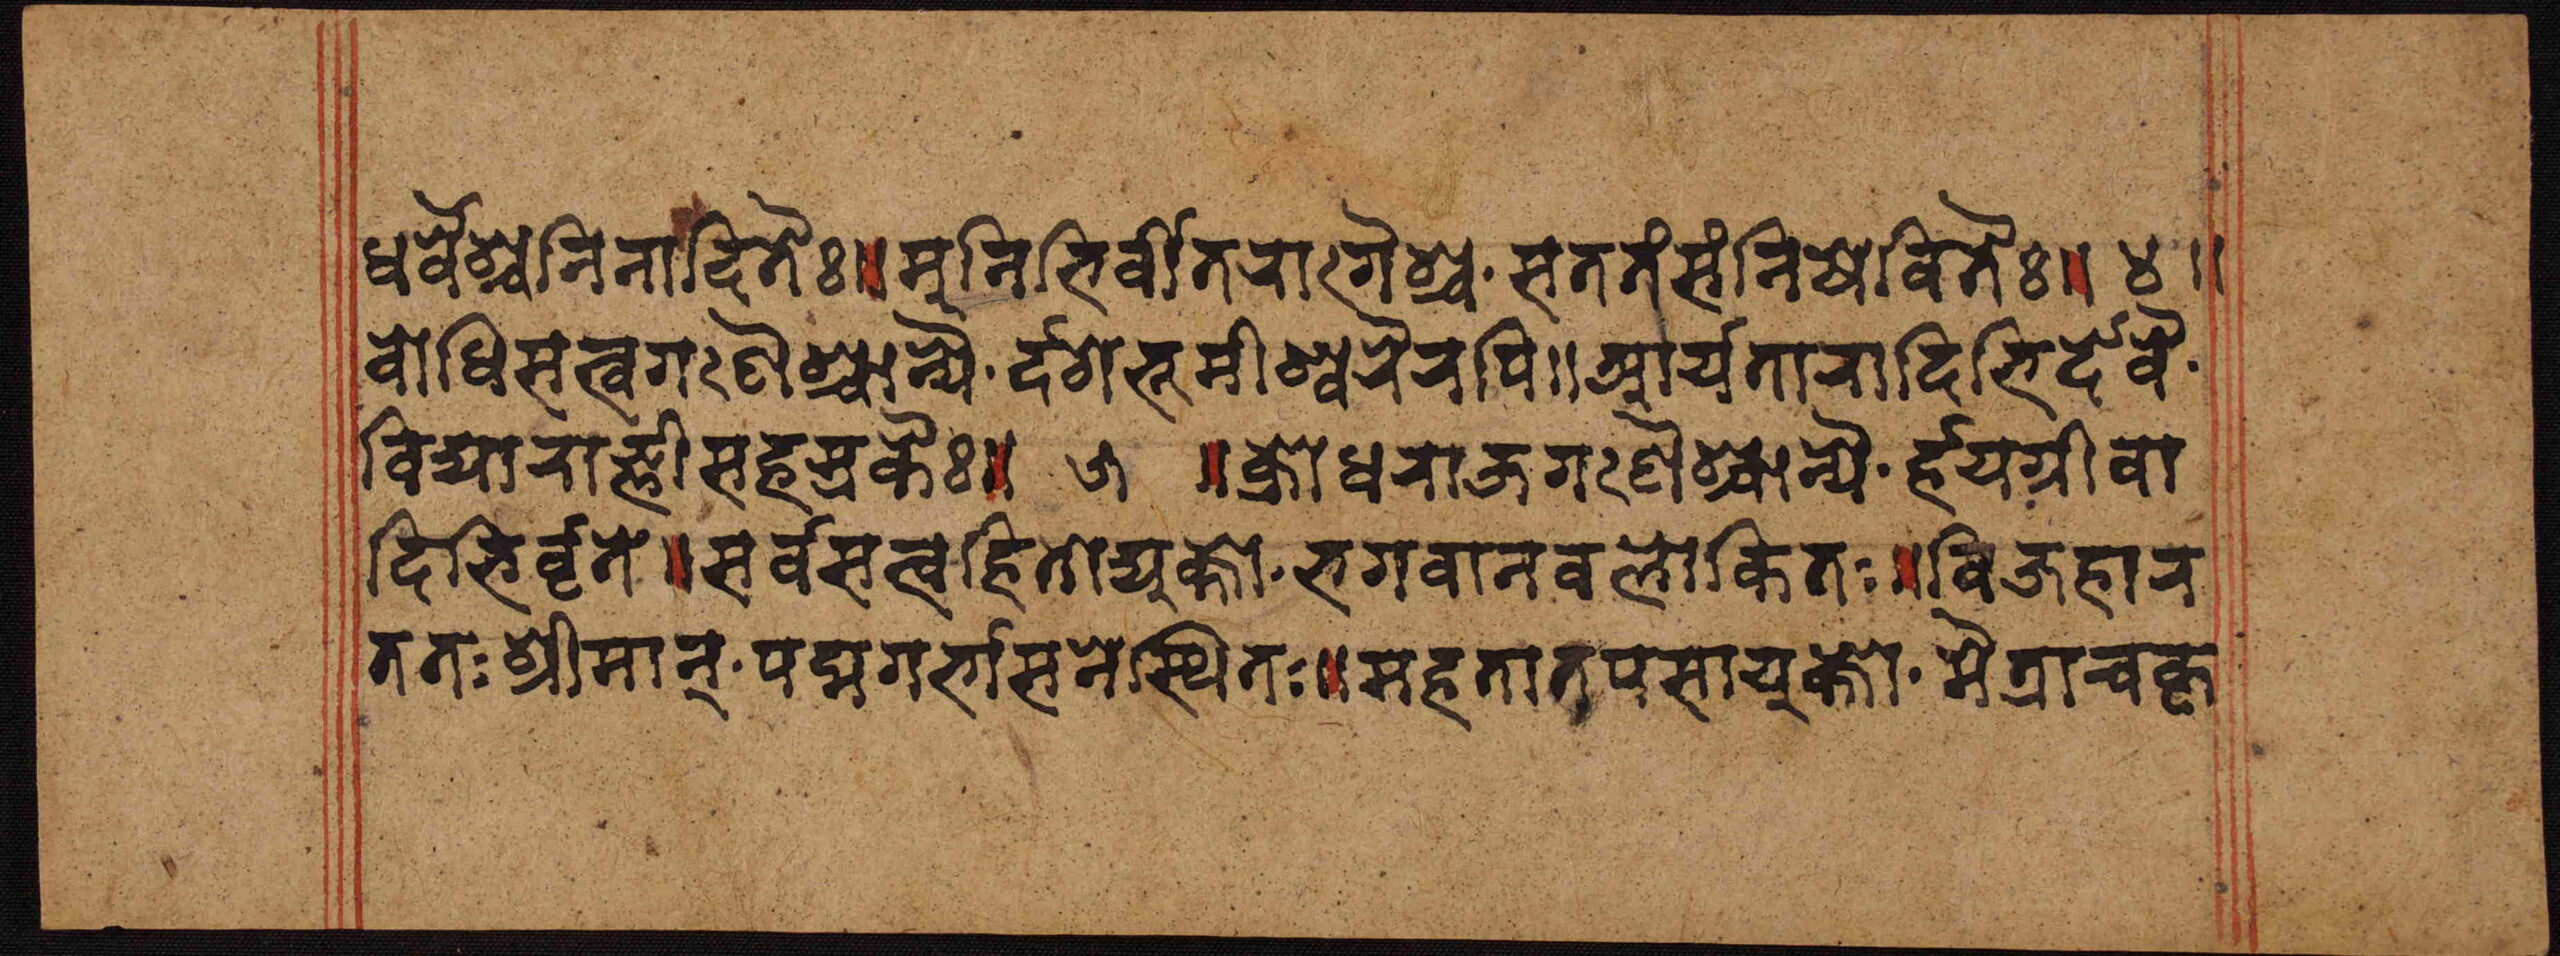 धर्वैश्चनिनादितैः॥मुनिभिर्वीतरागैश्च·सततंसंनिषेवितैः॥ ४ ॥
बोधिसत्वगणैश्चान्यै·र्दशभूमीश्वरैरपि॥आर्यतारादिभिर्देवै·
विद्याराज्ञीसहस्रकैः॥ ५ ॥क्रोधराजगणैश्चान्यै·र्हयग्रीवा
दिभिर्वृते॥सर्वसत्वहितोद्युक्तो·भगवानवलोकितः॥विजहार
ततःश्रीमान्·पद्मगर्भासनेस्थितः॥महतातपसायुक्तो·मैत्राचकृ